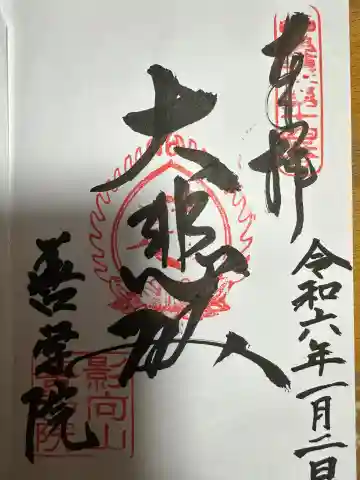 奉拝
令和六年一月二日
大悲殿
善栄院
影向山